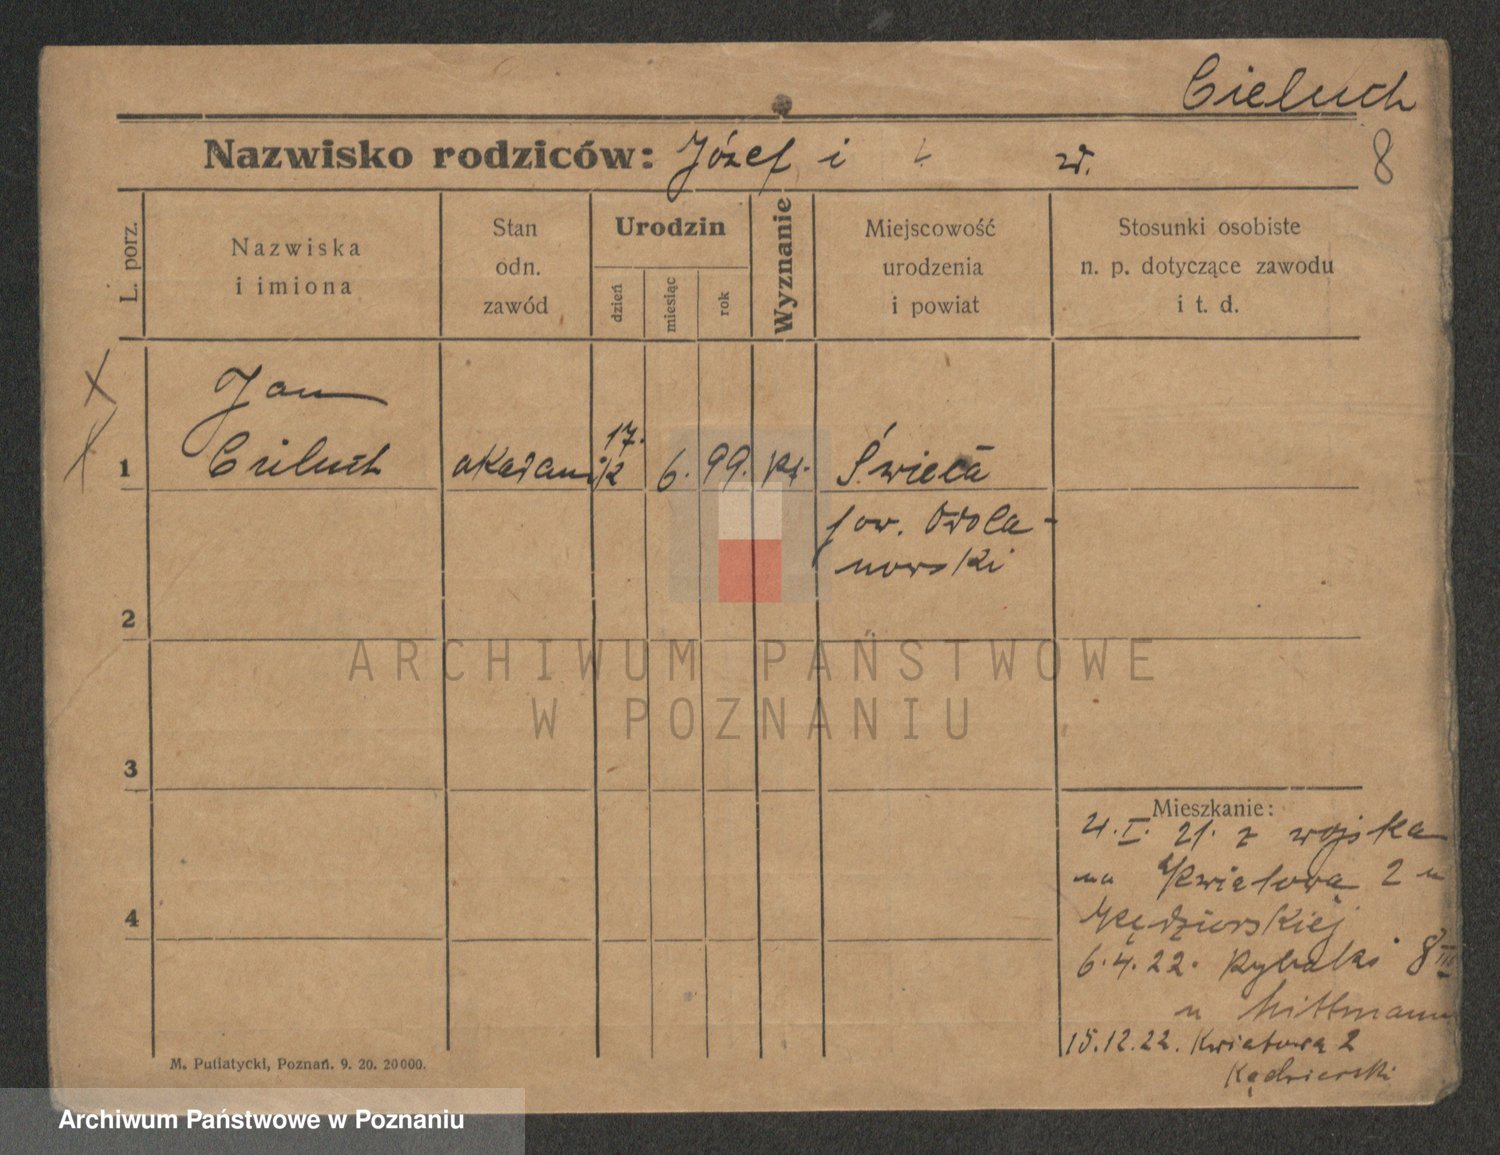 Cieluch
8
Nazwisko rodziców: Józef i zd.
L. porz.
Nazwiska
i imiona
Stan
odn.
zawód
Urodzin
dzień
miesiąc
rok
Wyznanie
Miejscowość
urodzenia
i powiat
Stosunki osobiste
n. p. dotyczące zawodu
i t. d.
Jan
1 Cieluch akademik 17. 6. 99. kt. Świeca
pow. Odola-
nowski
2
ARCHIWUM PAŃSTWOWE
W POZNANIU
3
4
Mieszkanie:
21. I. 21. z wojska
na Kwiatową 2 u
Kędziorskiej
6.4.22. Rybaki 8 III
u Mittmann
15.12.22. Kwiatowa 2
Kędzierski
M. Putiatycki, Poznań. 9. 20. 20000.
Archiwum Państwowe w Poznaniu